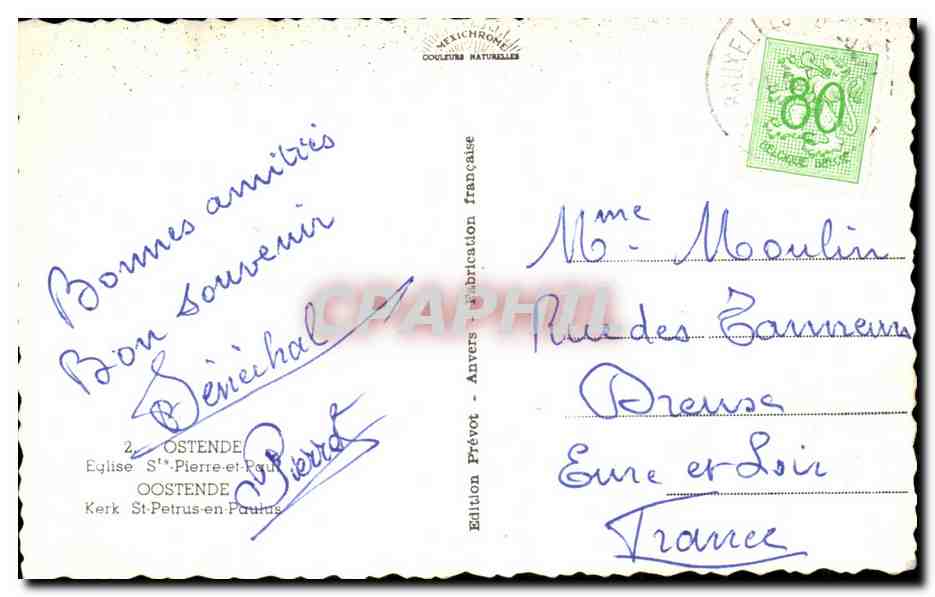 MEXICHROME
COULEURS NATURELLES
BRUXELLES
80
c
BELGIQUE BELGIE
Bonnes amitiés
Bon souvenir
Sénéchal
Pierrot
2. OSTENDE
Eglise Sts-Pierre-et-Paul
OOSTENDE
Kerk St-Petrus-en-Paulus
Edition Prévot - Anvers - Fabrication française
Mme Moulin
Rue des Tanneurs
Dreux
Eure et Loir
France
CPAPHIL